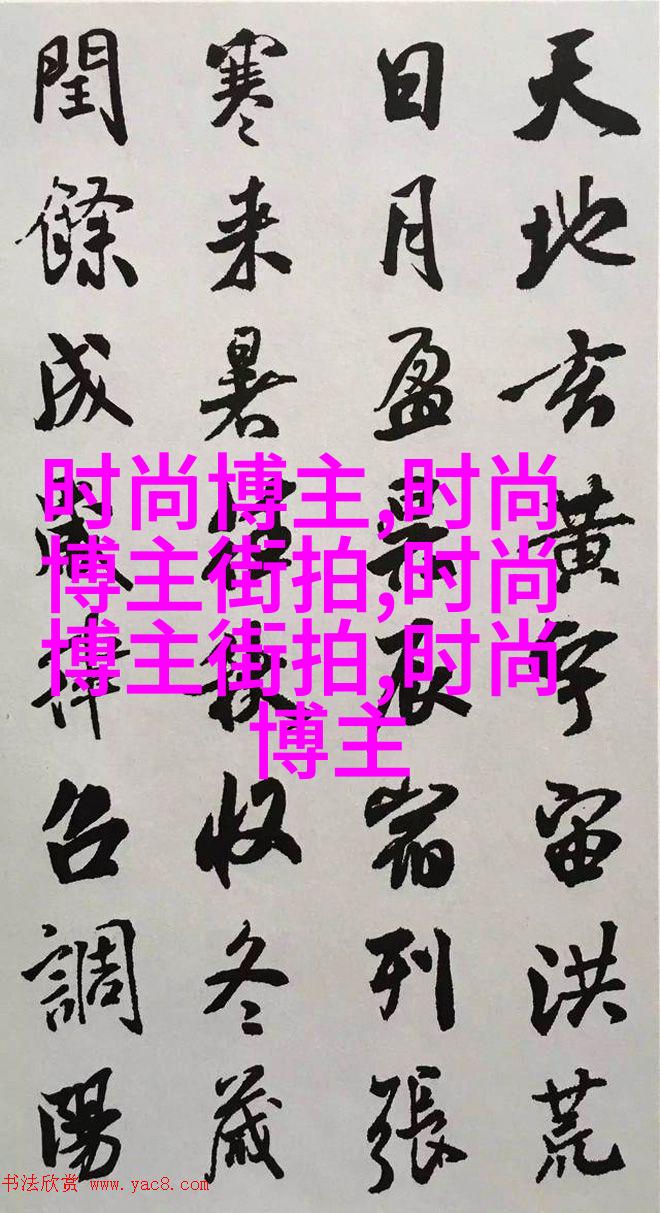 天地玄黄宇宙洪荒
日月盈昃辰宿列張
寒来暑往秋收冬藏
閏餘成歲律召調陽
时尚博主,时尚
博主街拍,时尚
博主街拍,时尚
博主
书法欣赏 www.yac8.com